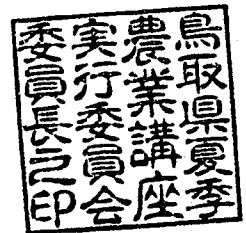 鳥取県夏季
農業講座
実行委員会
委員長之印